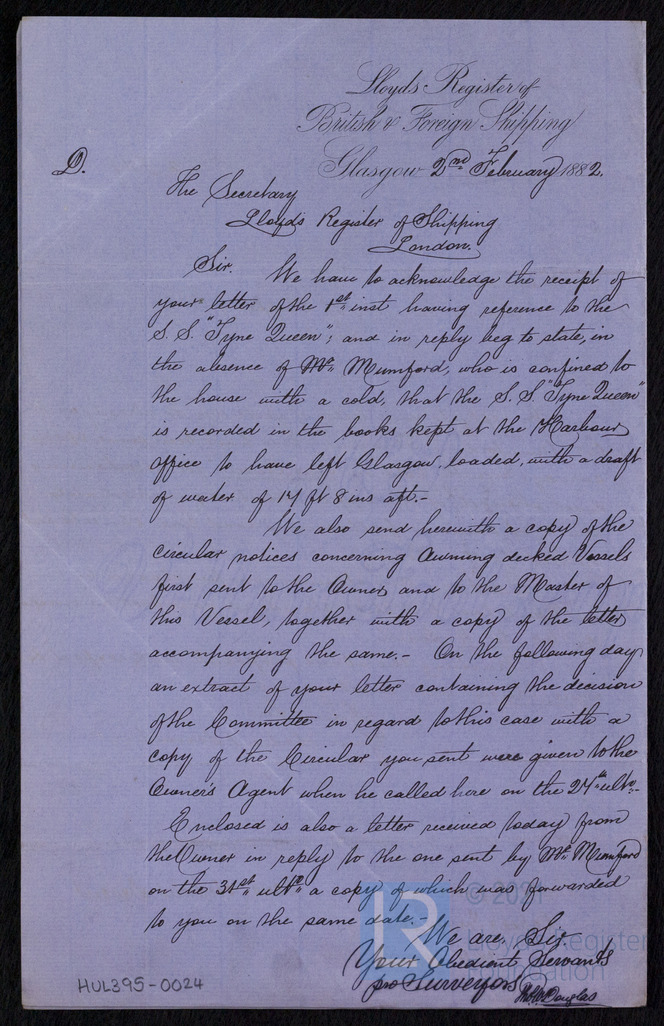 Lloyds Register of
British & Foreign Shipping
Glasgow 2nd February 1882.
D.
The Secretary
Lloyds Register of Shipping
London.
Sir. We have to acknowledge the receipt of
your letter of the 1st inst having reference to the
S.S. "Tyne Queen"; and in reply beg to state, in
the absence of Mr. Mumford, who is confined to
the house with a cold, that the S.S. "Tyne Queen"
is recorded in the books kept at the Harbour
office to have left Glasgow, loaded, with a draft
of water of 17 ft 8 ins aft.-
We also send herewith a copy of the
circular notices concerning Awning decked Vessels
first sent to the Owner and to the Master of
this Vessel, together with a copy of the letter
accompanying the same.- On the following day
an extract of your letter containing the decision
of the Committee in regard to this case with a
copy of the Circular you sent were given to the
Owner's Agent when he called here on the 27th ulto.-
Enclosed is also a letter received today from
the Owner in reply to the one sent by Mr. Mumford
on the 31st ulto a copy of which was forwarded
to you on the same date.-
We are, Sir,
Your Obedient Servants
pro Surveyors
Douglas
HUL395-0024
LR
Lloyd's Register
Foundation